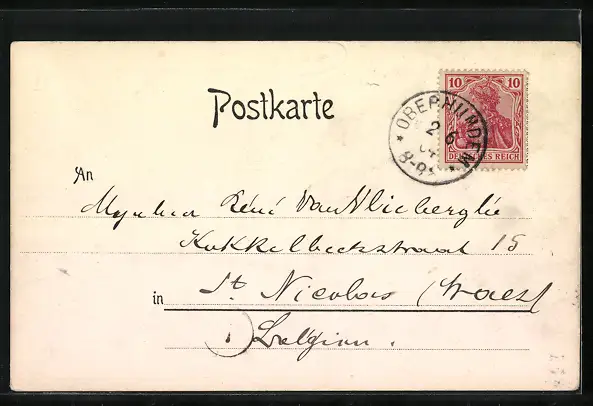 Postkarte
10 10
DEUTSCHES REICH
* OBERHUNDEM *
2 6
04
8-9
An
Mynheer René Van Vlieberghe
Kokkelbeekstraat 15
in St. Nicolas (Waes)
Belgien.